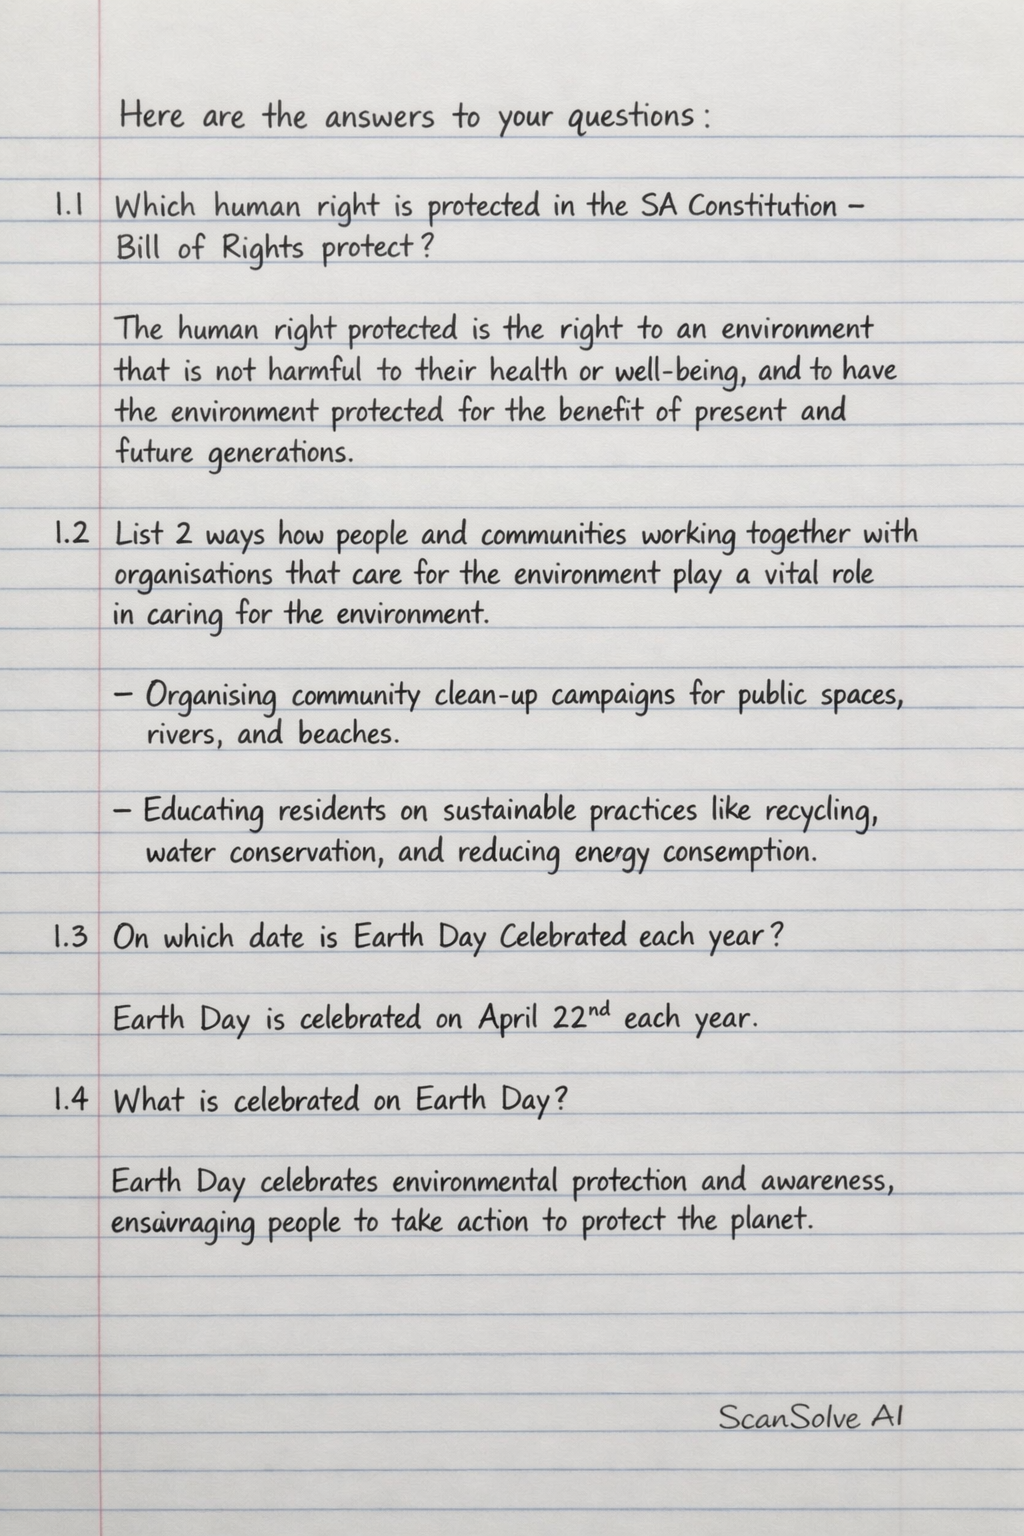 Here are the answers to your questions:
1.1 Which human right is protected in the SA Constitution –
Bill of Rights protect?
The human right protected is the right to an environment
that is not harmful to their health or well-being, and to have
the environment protected for the benefit of present and
future generations.
1.2 List 2 ways how people and communities working together with
organisations that care for the environment play a vital role
in caring for the environment.
– Organising community clean-up campaigns for public spaces,
rivers, and beaches.
– Educating residents on sustainable practices like recycling,
water conservation, and reducing energy consemption.
1.3 On which date is Earth Day Celebrated each year?
Earth Day is celebrated on April 22nd each year.
1.4 What is celebrated on Earth Day?
Earth Day celebrates environmental protection and awareness,
people to take action to protect the planet.
ScanSolve AI